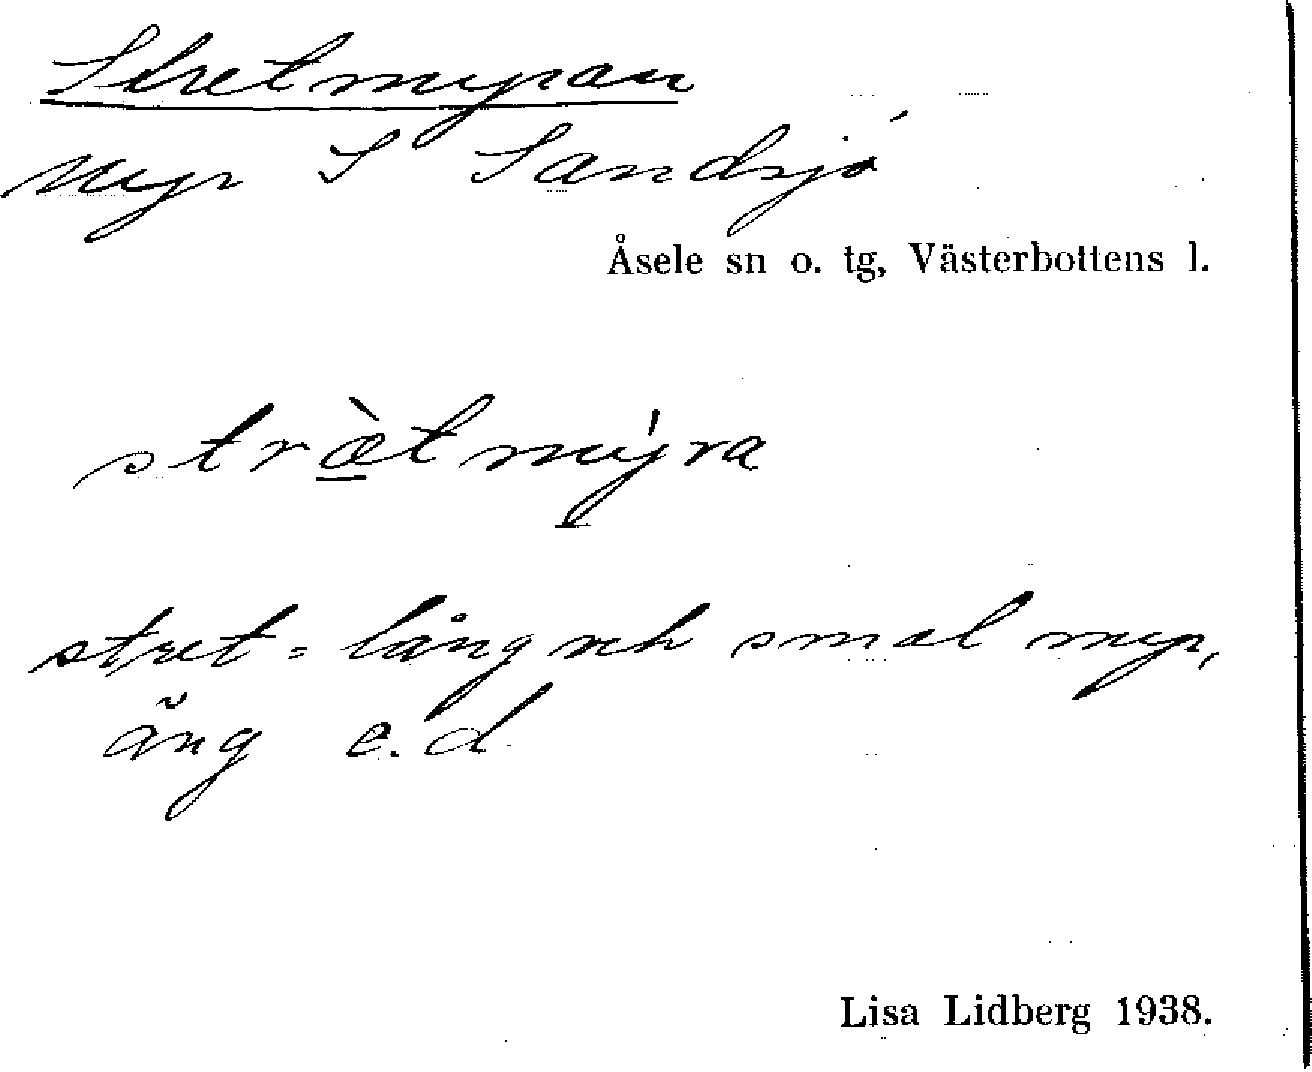 Stretmyran
myr S Sandsjö
Åsele sn o. tg, Västerbottens l.
stræ̀tmýra
stret = lång och smal myr,
äng e.d
Lisa Lidberg 1938.